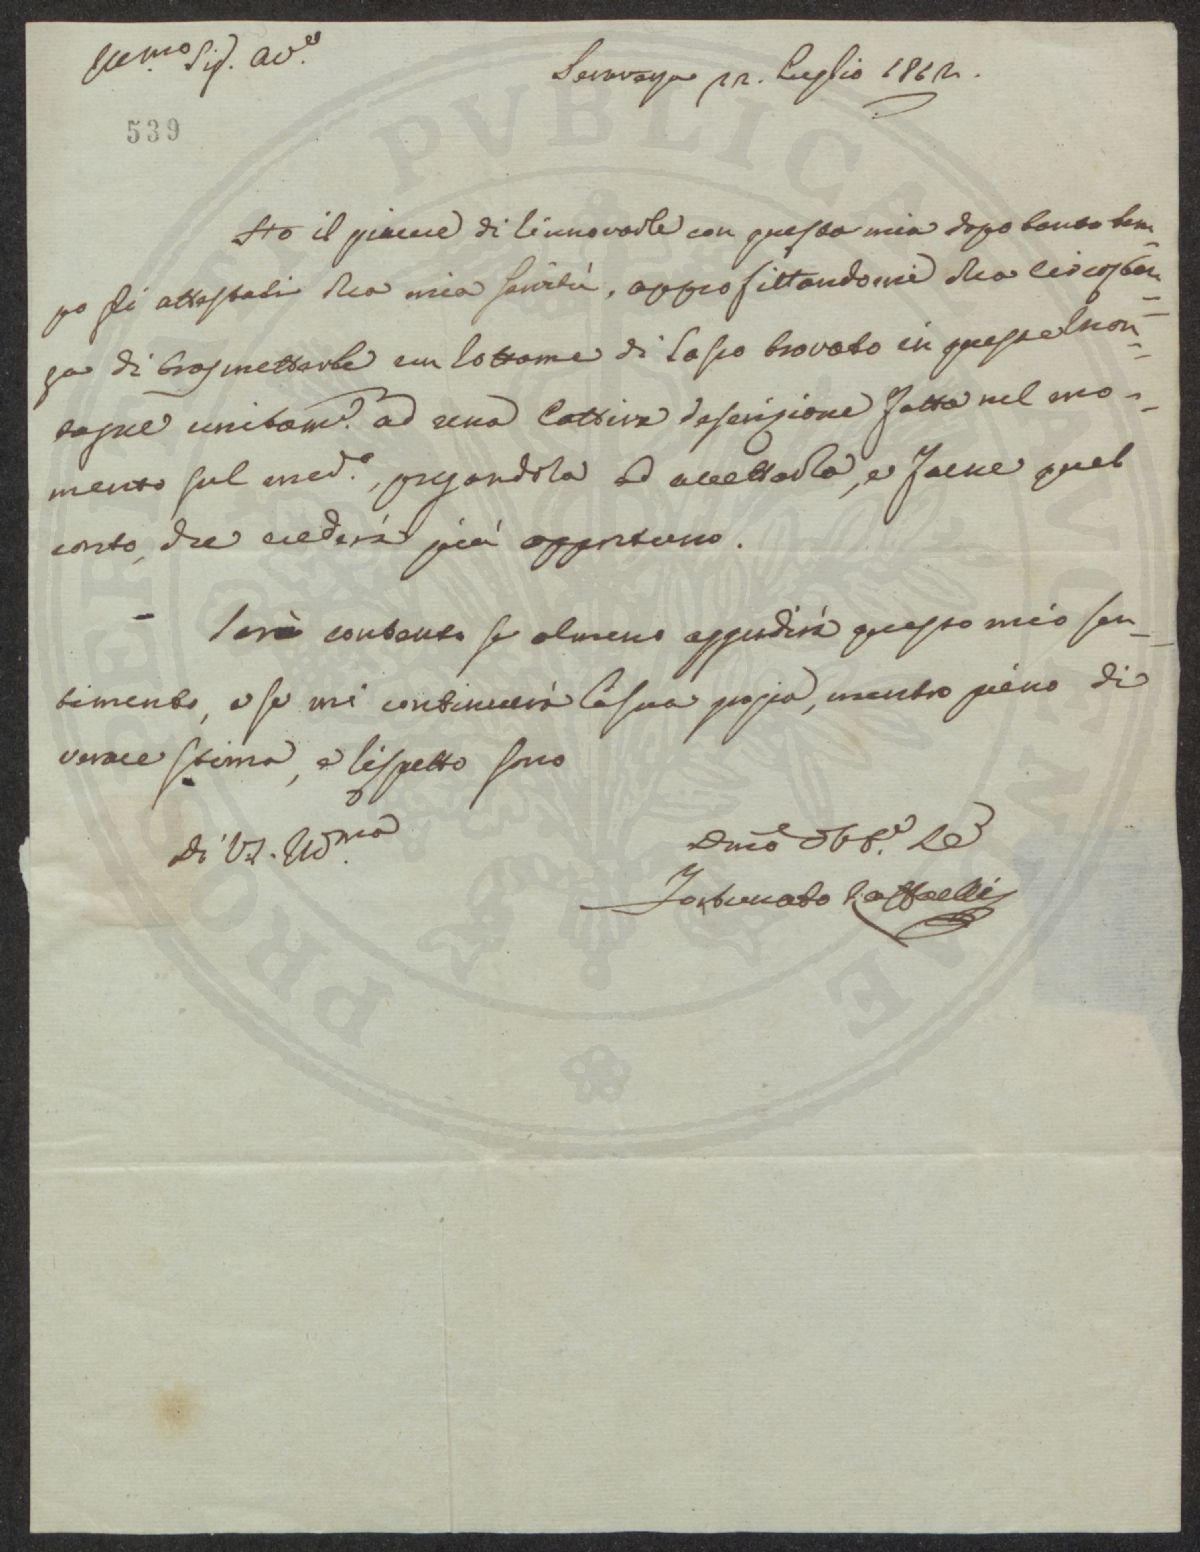 Ill.mo Sig. Av.o
Seravezza 22. Luglio 1812.
539
Ho il piacere di rinnovarle con questa mia dopo tanto tem=
po gli attestati della mia servitù, approfittandomi della circostan=
za di trasmetterle un rottame di Sasso trovato in queste Mon=
tagne unitam.e ad una Cattiva descrizione fatta nel mo=
mento sul med.o, pregandola ad accettarla, e farne quel
conto, che crederà più opportuno.
Sarò contento se almeno aggradirà questo mio sen=
timento, e se mi continuerà la sua grazia, mentre pieno di
verace stima, e rispetto sono
Di VS. Ill.ma
Dmo Obb.o Se
Fortunato Raffaelli
PROSPERITATI PVBLICAE AVGENDAE